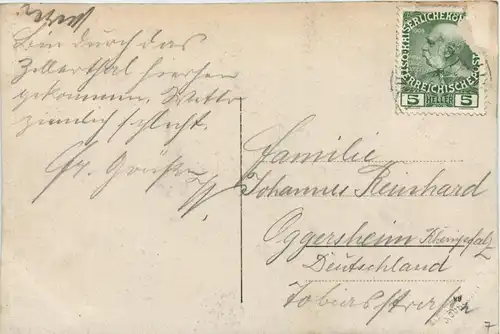 Bin durch das
Zillerthal hierher
gekommen. Wetter
ziemlich schlecht.
Gr. Grüße
KAISERLICHE KÖN
ERREICHISCHE POST
5 HELLER 5
Familie
Johannes Reinhard
Oggersheim Rheinpfalz
Deutschland
Tobiasstrasse
7